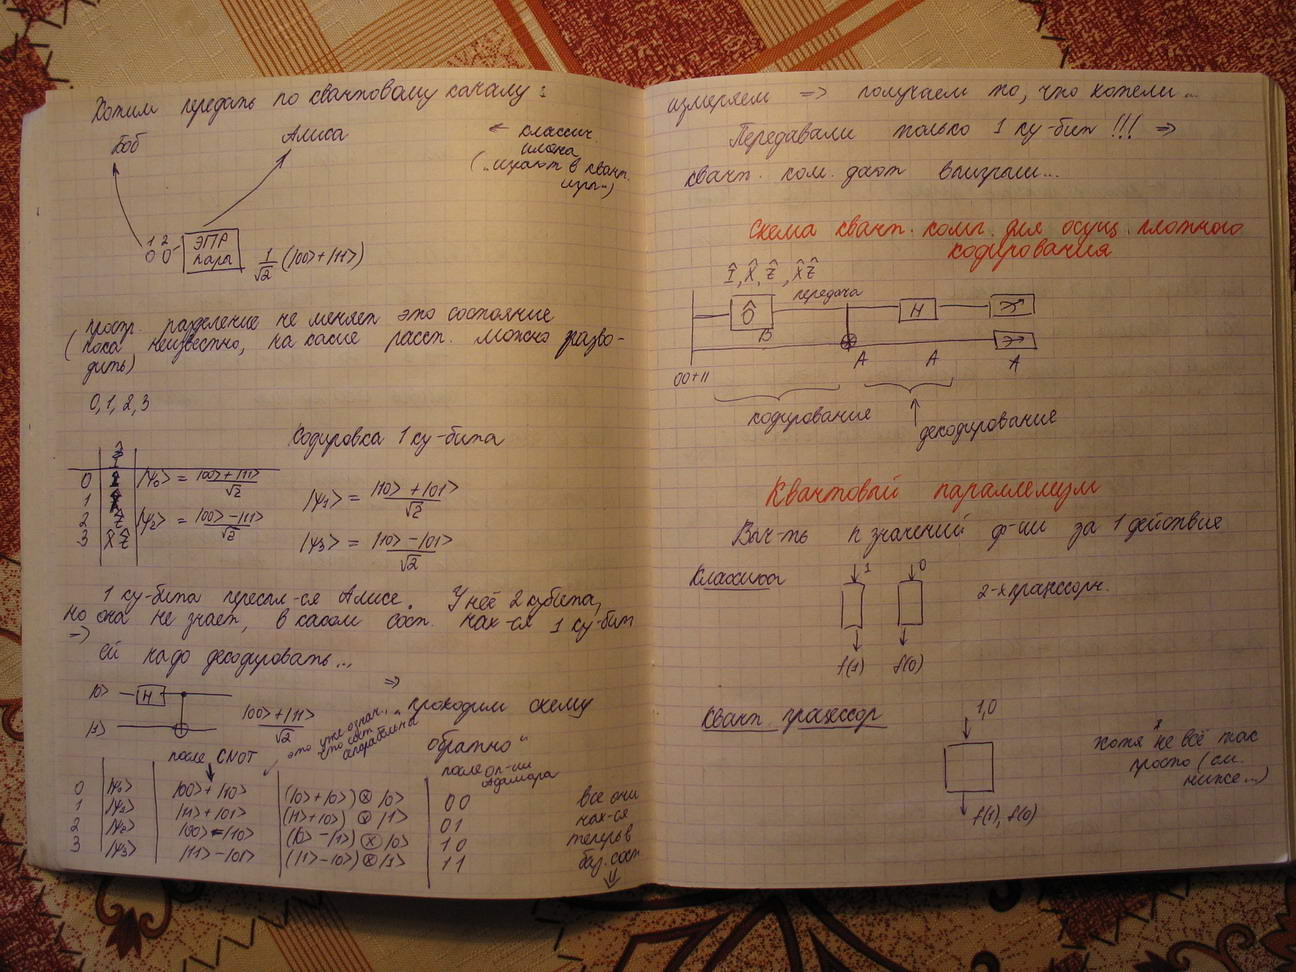 Хотим передать по квантовому каналу:
Боб
Алиса
← классич.
(„играют в квант.
игры")
1 2
0 0
ЭПР
пара
1/√2 (|00> + |11>)
(простр. разделение не меняет это состояние
(пока неизвестно, на какие расст. можно разво-
дить)
0, 1, 2, 3
Кодировка 1 ку-бита
0 |ψ₀> = |00> + |11> / √2
|ψ₁> = |10> + |01> / √2
1
2 Ẑ |ψ₂> = |00> - |11> / √2
3 X̂Ẑ
|ψ₃> = |10> - |01> / √2
1 ку-бита пересыл-ся Алисе. У неё 2 кубита,
но она не знает, в каком сост. нах-ся 1 ку-бит
=>
ей надо декодировать...
|0> H
|1>
|00> + |11> / √2
=> „проходим схему
обратно"
это уже означ.,
что сост.
после CNOT
после оп-ии
Адамара
0 |ψ₀> |00> + |10> (|0> + |1>) ⊗ |0> 00
1 |ψ₁> |11> + |01> (|1> + |0>) ⊗ |1> 01
2 |ψ₂> |00> - |10> (|0> - |1>) ⊗ |0> 10
3 |ψ₃> |11> - |01> (|1> - |0>) ⊗ |1> 11
все они
нах-ся
теперь в
баз. сост.
измеряем => получаем то, что хотели...
Передавали только 1 ку-бит !!! =>
квант. ком. дают выигрыш...
Схема квант. комп. для осущ. плотного
кодирования
Î, X̂, Ẑ, X̂Ẑ
передача
Ô
H
B
A A A
00+11
кодирование
декодирование
Квантовый параллелизм
Выч-ть n значений ф-ии за 1 действие
Классика
1 0
2-х процессорн.
f(1) f(0)
Квант. процессор
1,0
хотя не всё так
просто (см.
ниже...)
f(1), f(0)